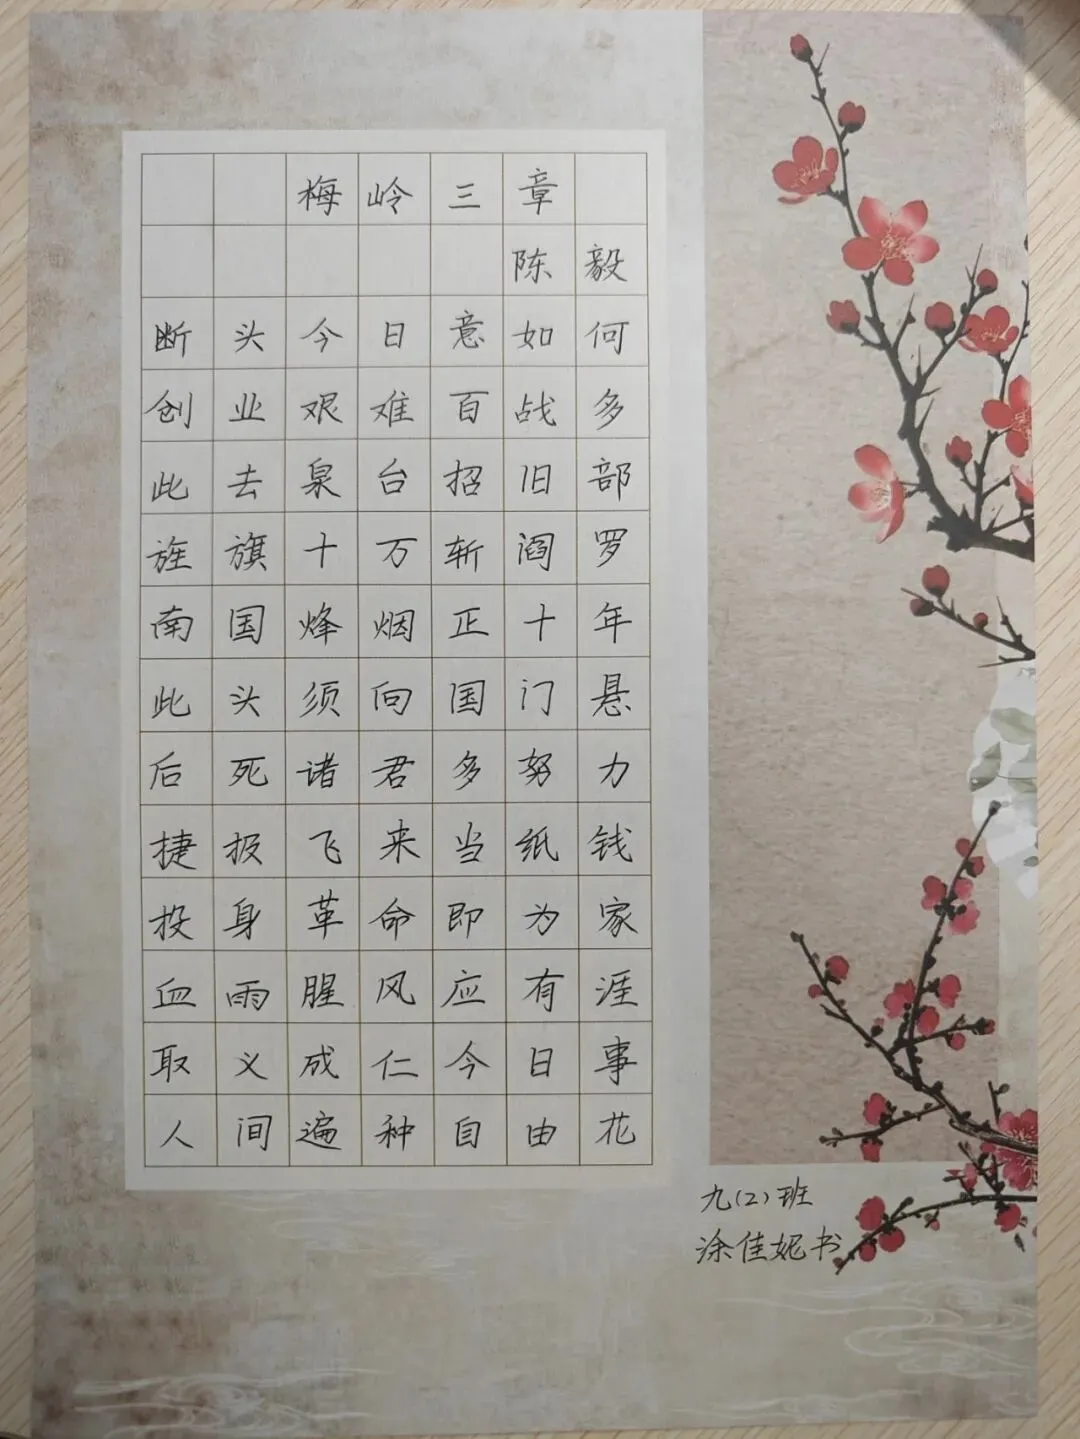 梅岭三章
陈毅
断头今日意如何
创业艰难百战多
此去泉台招旧部
旌旗十万斩阎罗
南国烽烟正十年
此头须向国门悬
后死诸君多努力
捷报飞来当纸钱
投身革命即为家
血雨腥风应有涯
取义成仁今日事
人间遍种自由花
九(2)班
涂佳妮书